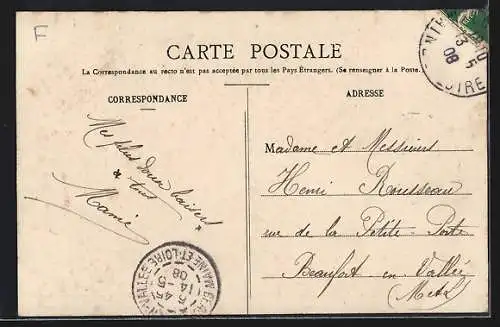 F
CARTE POSTALE
La Correspondance au recto n'est pas acceptée par tous les Pays Étrangers. (Se renseigner à la Poste.
CORRESPONDANCE
ADRESSE
Mes plus doux baisers
à tous
Mamie
Madame et Messieurs
Henri Rousseau
rue de la Petite-Porte
Beaufort en Vallée
MAINE-ET-LOIRE
6 45
14 -5
08
13 -5
08
LOIRE